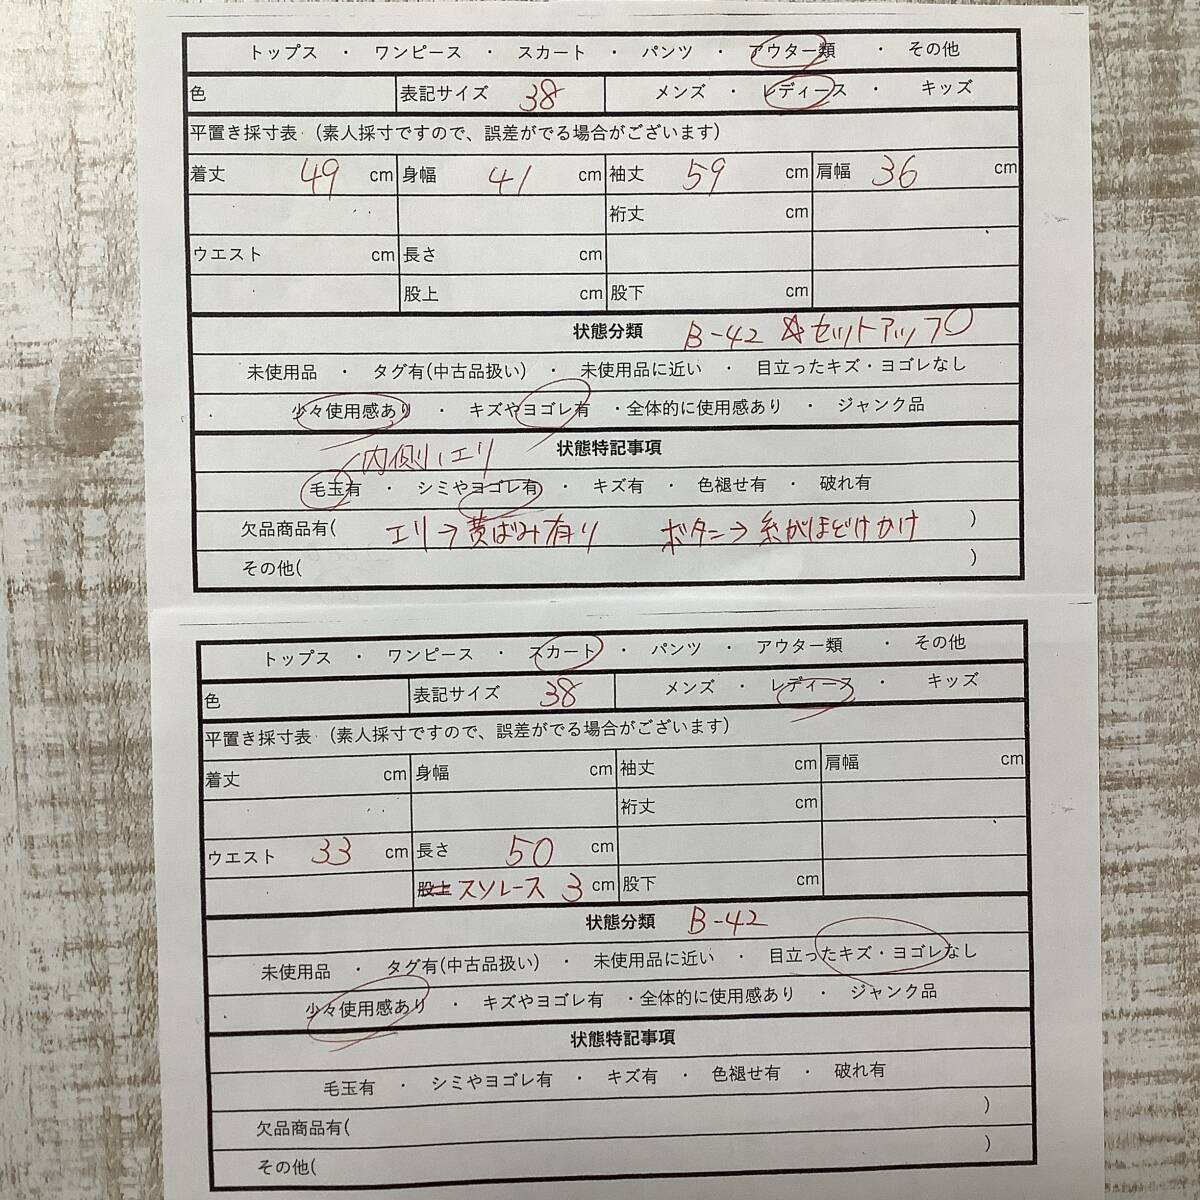 トップス ・ ワンピース ・ スカート ・ パンツ ・ アウター類 ・ その他
色 表記サイズ 38 メンズ ・ レディース ・ キッズ
平置き採寸表 (素人採寸ですので、誤差がでる場合がございます)
着丈 49 cm 身幅 41 cm 袖丈 59 cm 肩幅 36 cm
裄丈 cm
ウエスト cm 長さ cm
股上 cm 股下 cm
状態分類 B-42 ☆セットアップ
未使用品 ・ タグ有(中古品扱い) ・ 未使用品に近い ・ 目立ったキズ・ヨゴレなし
少々使用感あり ・ キズやヨゴレ有 ・全体的に使用感あり ・ ジャンク品
状態特記事項
内側、エリ
毛玉有 ・ シミやヨゴレ有 ・ キズ有 ・ 色褪せ有 ・ 破れ有
欠品商品有( エリ→黄ばみ有り ボタン→糸がほどけかけ )
その他( )
トップス ・ ワンピース ・ スカート ・ パンツ ・ アウター類 ・ その他
色 表記サイズ 38 メンズ ・ レディース ・ キッズ
平置き採寸表 (素人採寸ですので、誤差がでる場合がございます)
着丈 cm 身幅 cm 袖丈 cm 肩幅 cm
裄丈 cm
ウエスト 33 cm 長さ 50 cm
股上 スソレース 3 cm 股下 cm
状態分類 B-42
未使用品 ・ タグ有(中古品扱い) ・ 未使用品に近い ・ 目立ったキズ・ヨゴレなし
少々使用感あり ・ キズやヨゴレ有 ・全体的に使用感あり ・ ジャンク品
状態特記事項
毛玉有 ・ シミやヨゴレ有 ・ キズ有 ・ 色褪せ有 ・ 破れ有
欠品商品有( )
その他( )